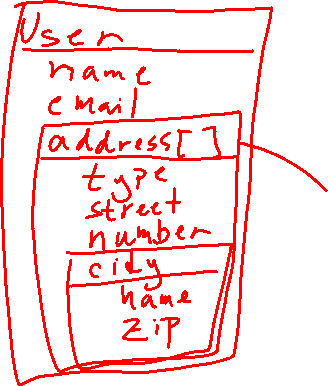 User
name
email
address[ ]
type
street
number
city
name
zip